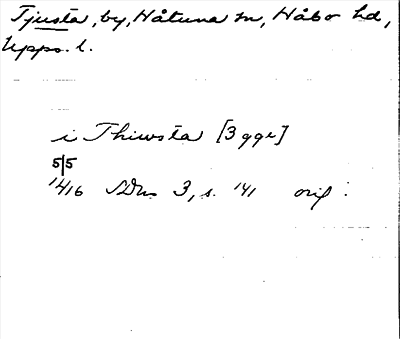 Tjusta, by, Håtuna sn, Håbo hd,
Upps. l.
i Thiwsta [3 ggr]
5/5
1416 SDns 3, s. 141 orig.